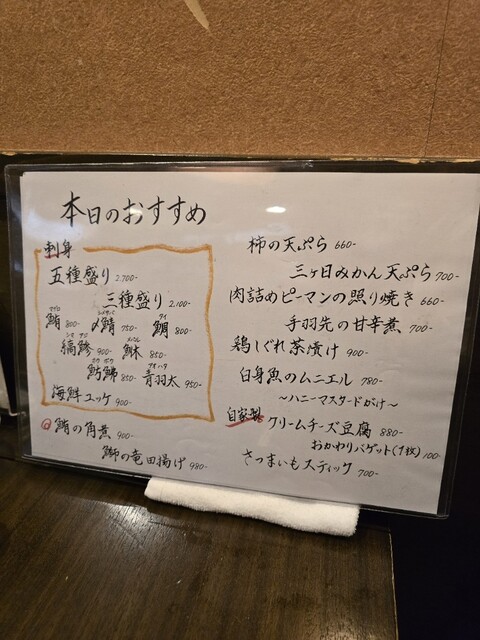 本日のおすすめ
刺身
五種盛り 2,700-
三種盛り 2,100-
鮪 800- 〆鯖 750- 鯛 800-
縞鯵 900- 850-
魴鮄 850- 青羽太 950-
海鮮ユッケ 900-
鮪の角煮 900-
鰤の竜田揚げ 980-
柿の天ぷら 660-
三ヶ日みかん天ぷら 700-
肉詰めピーマンの照り焼き 660-
手羽先の甘辛煮 700-
鶏しぐれ茶漬け 900-
白身魚のムニエル 780-
〜ハニーマスタードがけ〜
自家製 クリームチーズ豆腐 880-
おかわりバゲット(1枚) 100-
さつまいもスティック 700-